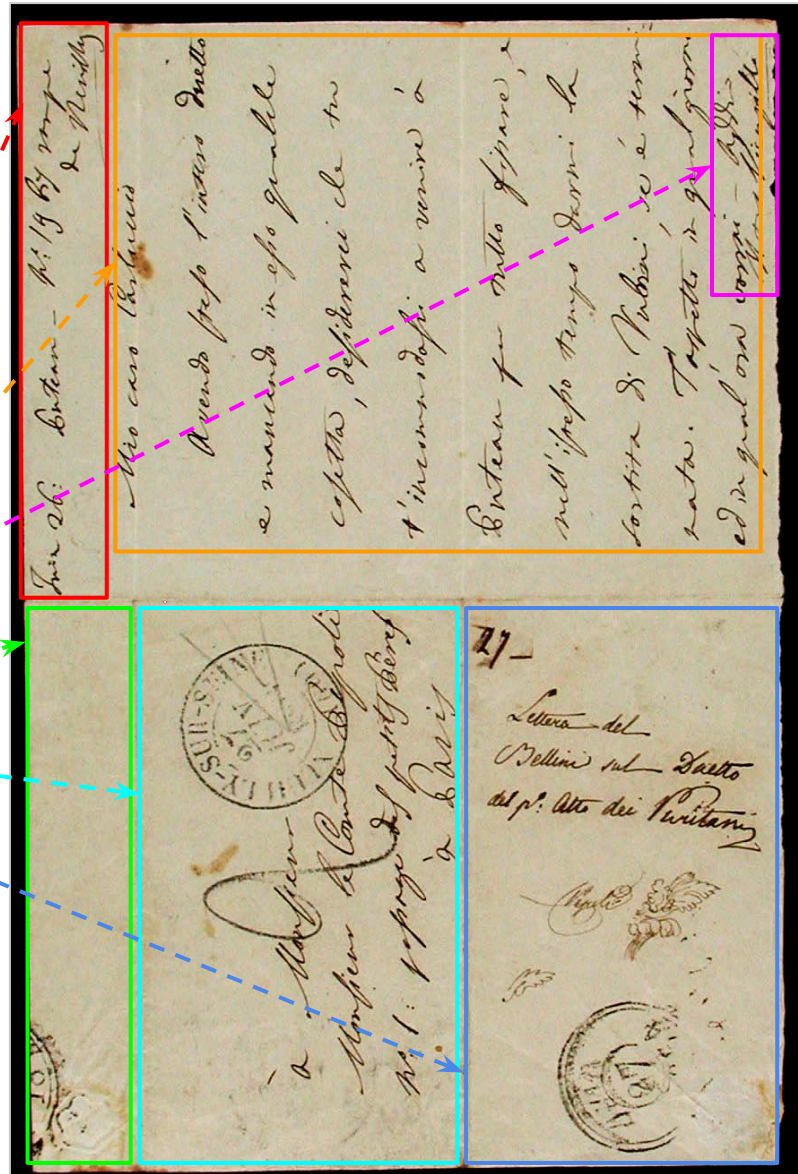 Juin 26: Puteau – N.º 19 bis rampe
de Neuilly
Mio caro Carluccio
Avendo preso l'intero duetto
e mancando in esso qualche
cosetta, desidererei che tu
t'incomodassi a venire à
Puteau per tutto fissare, e
nell'istesso tempo darmi la
sortita di Valton se è termi
nata. T'aspetto in qual giorno
ed in qual'ora vorrai – Addio
NEUILLY-SUR-SEINE
à Monsieur
Monsieur le Comte Pepoli
No. 1: passage des petits Pères
à Paris
27
Lettera del
Bellini sul Duetto
del pº: Atto dei Puritani